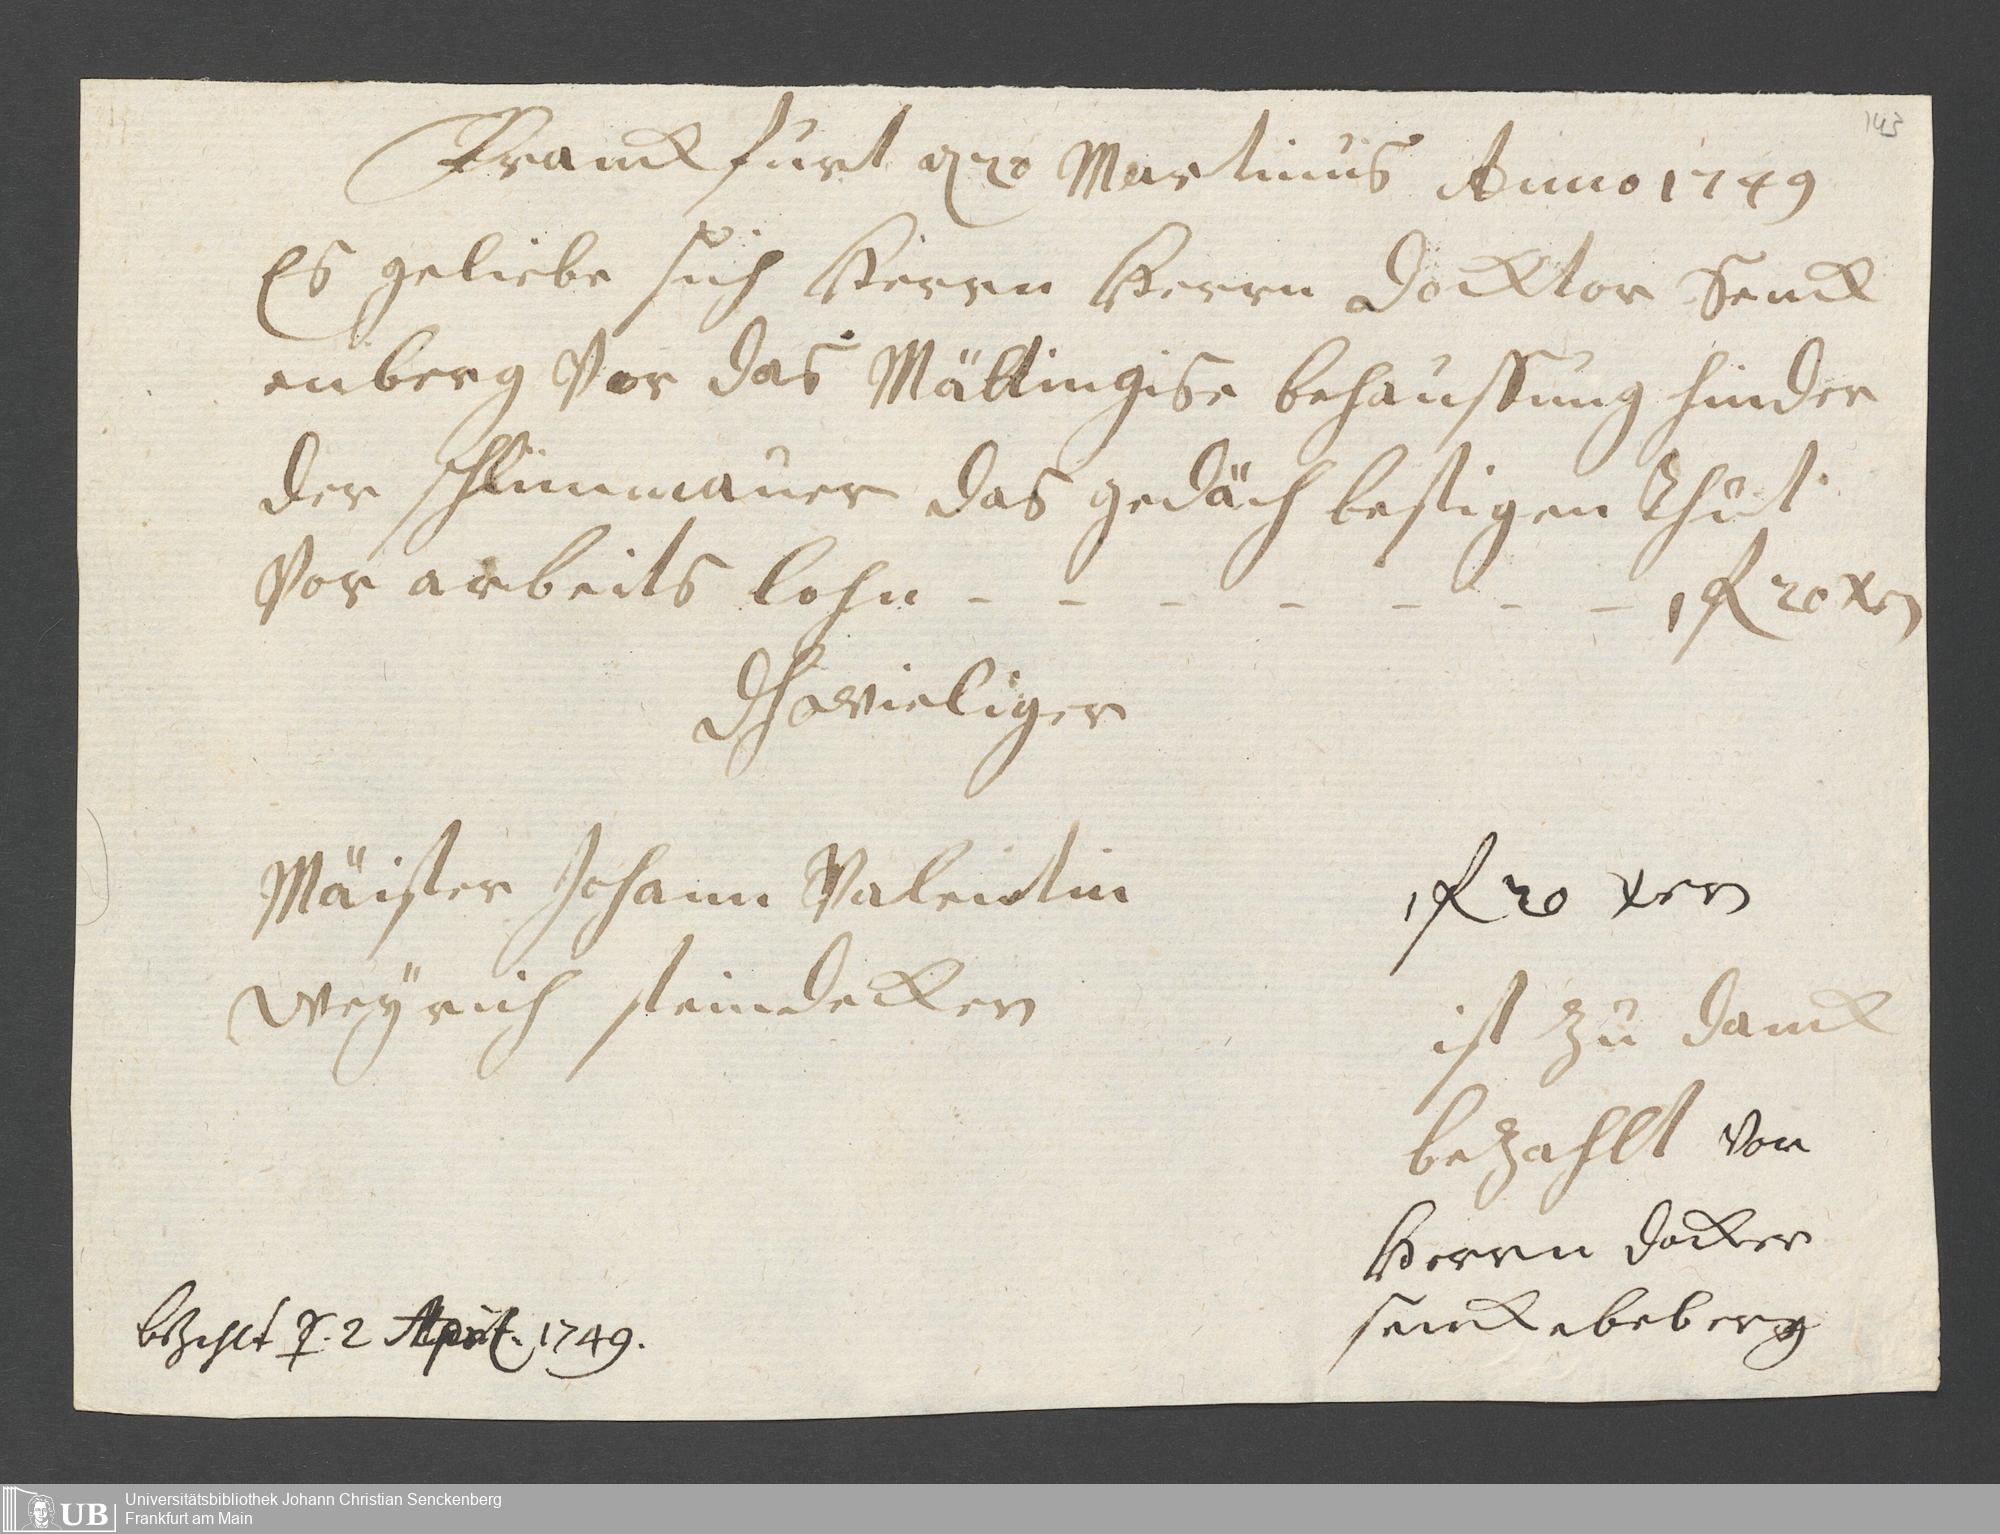 143
Franckfurt d 20 Martinus Anno 1749
Es geliebe sich Herrn Herrn Docktor Senck
enberg Vor das Mättingise behaussung hinder
der schlimmauer das gedäch bestigen Thut
Vor arbeits lohn - - - - - - - 1 fl 20 xer
Mäister Johann Valentin
Weÿrich steindecker
1 fl 20 xer
ist zu danck
bezahlt von
Herrn docker
senckebeberg
bezahlt d. 2 April. 1749.
UB
Universitätsbibliothek Johann Christian Senckenberg
Frankfurt am Main